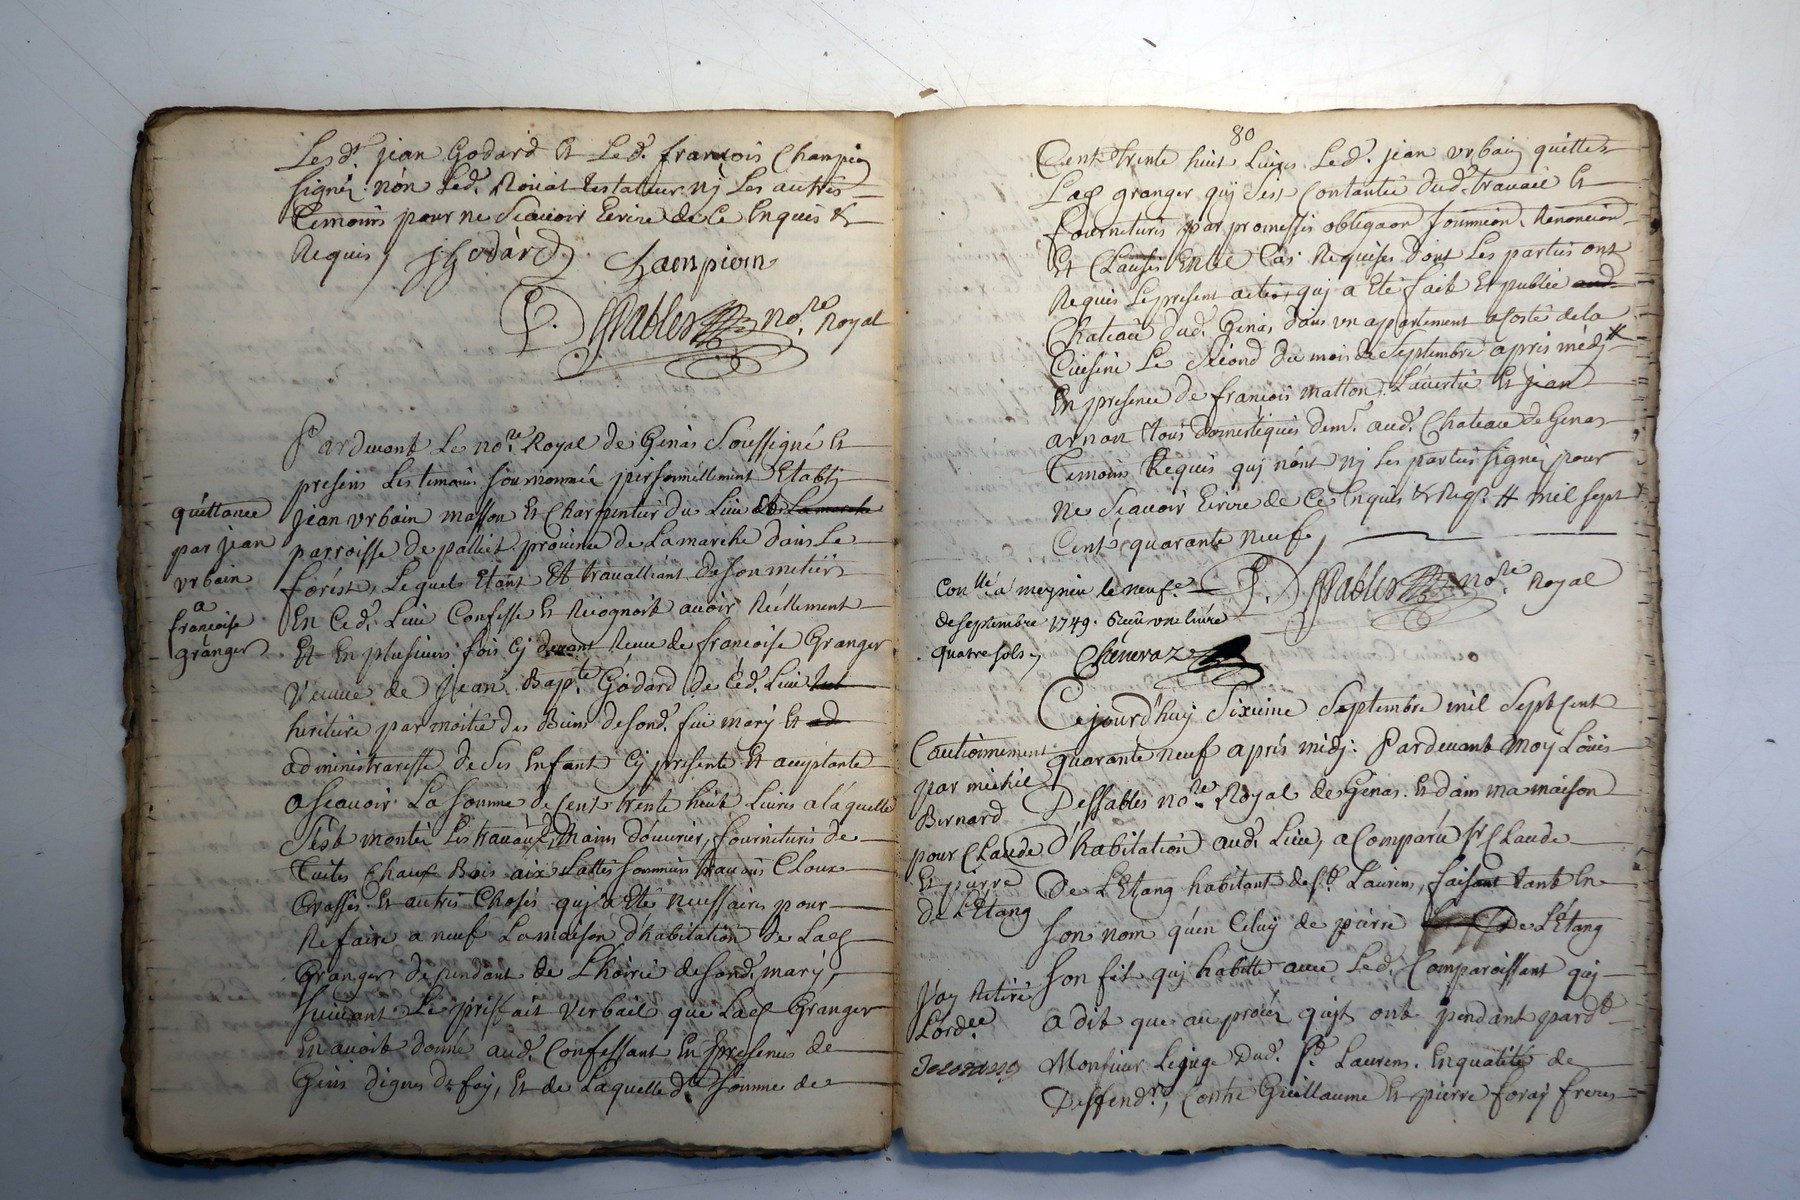 Led.t jean Godard et Led. françois Champion
signés non Led. Noviat testateur nj Les autres
temoins pour ne Scavoir Ecrire de Ce Enquis &
Requis, JGodard Champion
Dessables no.re Royal
Pardevant Le no.re Royal de Genas Soussigné et
presens Les temoins sousnommés personnellement Etablj
quittance
par jean
vrbain
a
francoise
granger
jean vrbain masson et Charpentier du Lieu de Lamarche
parroisse de pallet province de Lamarche dans Le
forést, Lequel Etant Et travalliant de son metier
En Ced. Lieu Confesse et Recognoit avoir Réellement
Et En plusieurs fois Cj devant Receu de francoise Granger
Veuve de Jean Bap.te Godard de Ced. Lieu
heritiere par moitié des Biens de fond. feu mary et ad
administraresse de Ses Enfant Cj presente et acceptante
ascavoir La somme de Cent trente huit Livres a laquelle
S'est montée Les travaux, Mains d'ouvrier, fournitures de
tuiles Chaux Bois aix Lattes sommiers travons Cloux
Crosses et autres Choses quj a Eté necessaires pour
Refaire a neuf La maison d'habitation de Lad.
Granger dependant de L'hoirie de fond. mary,
suivant Le prisfait Verbail que Lad. Granger
En avoit donné aud. Confessant En presences de
Gens dignes de foy, Et de Laquelle d.te somme de
80
Cent trente huit Livres Led. jean vrbain quitte
Lad. granger quj s'est Contantée dud. travail et
fournitures par promesses obligaon soumiōn Renonciōn
Et Clauses En tel Cas Requises dont Les parties ont
Requis Le present acte, quj a Eté fait Et publié aud.
Chateau dud. Genas dans un appartement a Costé de la
Cuisine Le Second du mois de Septembre apres midj #
En presence de francois matton Lavertu et jean
arnan tous domestiques dem.t aud. Chateau de Genas
temoins Requis quj n'ont nj Les parties signes pour
ne Scavoir Ecrire de Ce Enquis & Req.s # mil sept
Cent quarante neuf,
Con.llé a meyzieu le neuf.e
de septembre 1749. Receu une livre
quatre sols, Chenevaz
Dessables no.re Royal
Cejourd'huy Sixieme Septembre mil Sept Cent
Cautionnement
par michel
Bernard
pour Claude
Et pierre
de L'Etang
quarante neuf apres midj. Pardevant Moy Loüis
Dessables no.re Royal de Genas Et dans ma maison
D'habitation aud. Lieu, a Comparu s.r Claude
De L'Etang habitant de s.t Laurens, faisant tant En
son nom qu'en Celuy de pierre De L'Etang
son fil quj habitte avec Led. Comparoissant quj
J'ay Retiré
L'ord.ce
a dit que au procez quj't ont pendant pard.t
Monsieur Le juge Dud. s.t Laurens, En qualité de
Deffend.rs, Contre Guillaume Et pierre foray freres